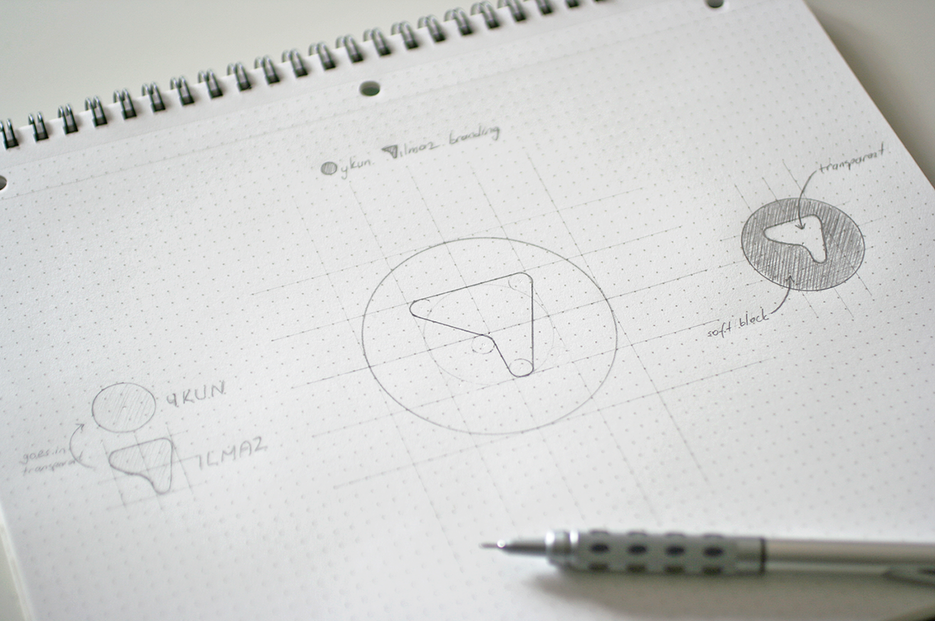 ykun. ilmaz branding
transparent.
soft black
YKUN
ILMAZ
goes in
transparent